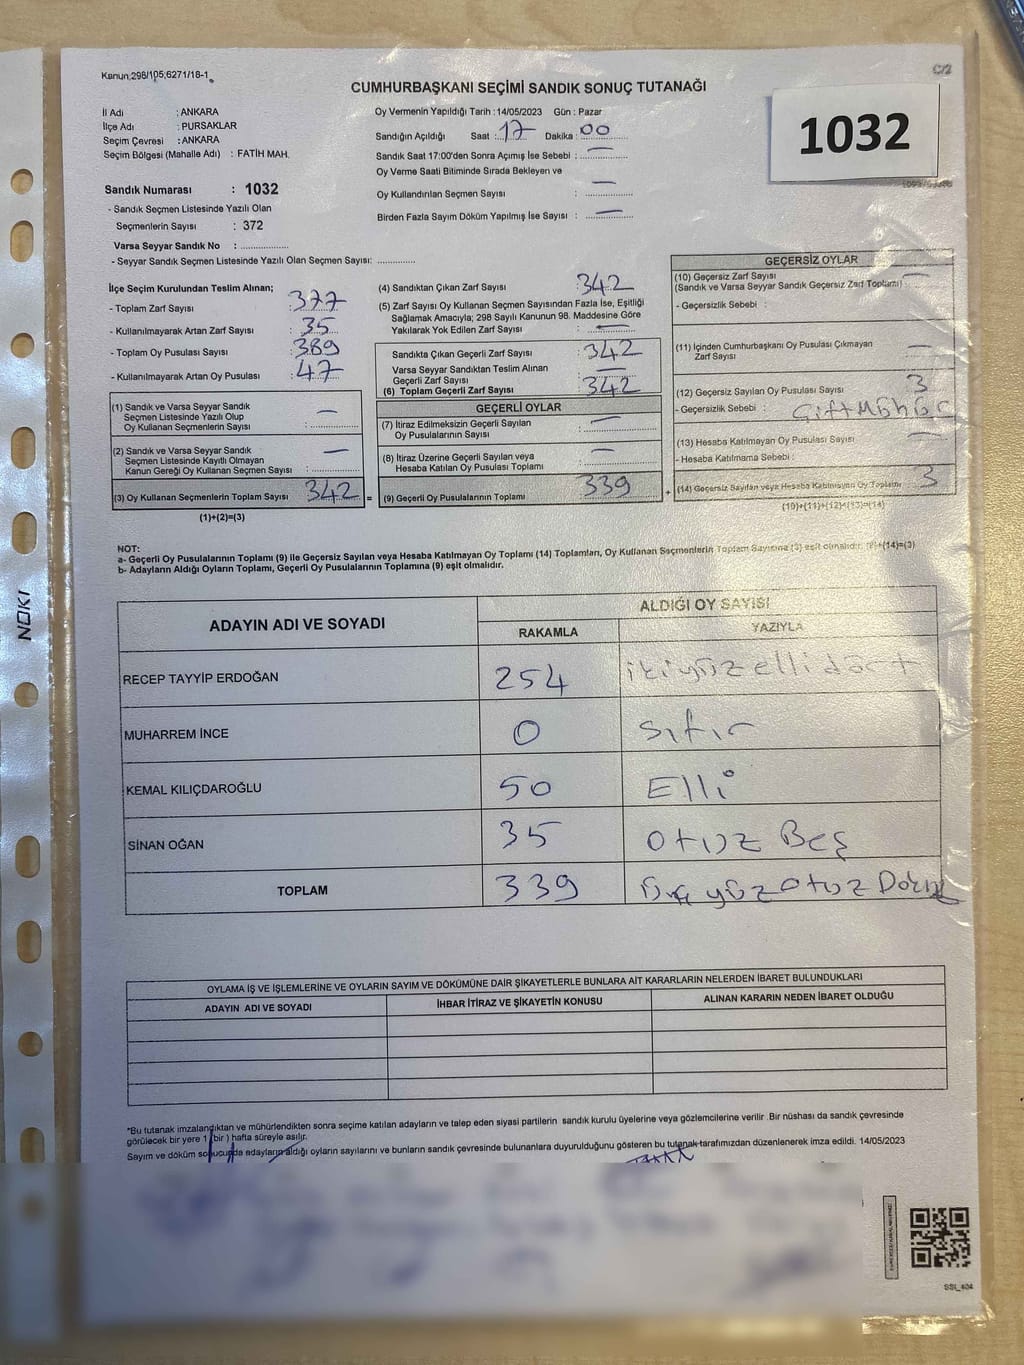 Kanun,298/105;6271/18-1
C/2
CUMHURBAŞKANI SEÇİMİ SANDIK SONUÇ TUTANAĞI
1032
İl Adı : ANKARA
İlçe Adı : PURSAKLAR
Seçim Çevresi : ANKARA
Seçim Bölgesi (Mahalle Adı) : FATİH MAH.
Sandık Numarası : 1032
- Sandık Seçmen Listesinde Yazılı Olan
Seçmenlerin Sayısı : 372
Varsa Seyyar Sandık No : ................
- Seyyar Sandık Seçmen Listesinde Yazılı Olan Seçmen Sayısı: .............
Oy Vermenin Yapıldığı Tarih : 14/05/2023 Gün : Pazar
Sandığın Açıldığı Saat : 17 Dakika : 00
Sandık Saat 17:00'den Sonra Açımış İse Sebebi : —
Oy Verme Saati Bitiminde Sırada Bekleyen ve
Oy Kullandırılan Seçmen Sayısı : —
Birden Fazla Sayım Döküm Yapılmış İse Sayısı : —
İlçe Seçim Kurulundan Teslim Alınan;
- Toplam Zarf Sayısı : 377
- Kullanılmayarak Artan Zarf Sayısı : 35
- Toplam Oy Pusulası Sayısı : 389
- Kullanılmayarak Artan Oy Pusulası : 47
(1) Sandık ve Varsa Seyyar Sandık
Seçmen Listesinde Yazılı Olup
Oy Kullanan Seçmenlerin Sayısı : —
(2) Sandık ve Varsa Seyyar Sandık
Seçmen Listesinde Kayıtlı Olmayan
Kanun Gereği Oy Kullanan Seçmen Sayısı : —
(3) Oy Kullanan Seçmenlerin Toplam Sayısı 342 =
(1)+(2)=(3)
(4) Sandıktan Çıkan Zarf Sayısı : 342
(5) Zarf Sayısı Oy Kullanan Seçmen Sayısından Fazla İse, Eşitliği
Sağlamak Amacıyla; 298 Sayılı Kanunun 98. Maddesine Göre
Yakılarak Yok Edilen Zarf Sayısı : —
Sandıkta Çıkan Geçerli Zarf Sayısı : 342
Varsa Seyyar Sandıktan Teslim Alınan
Geçerli Zarf Sayısı : —
(6) Toplam Geçerli Zarf Sayısı : 342
GEÇERLİ OYLAR
(7) İtiraz Edilmeksizin Geçerli Sayılan
Oy Pusulalarının Sayısı : —
(8) İtiraz Üzerine Geçerli Sayılan veya
Hesaba Katılan Oy Pusulası Toplamı : —
(9) Geçerli Oy Pusulalarının Toplamı 339 +
GEÇERSİZ OYLAR
(10) Geçersiz Zarf Sayısı —
(Sandık ve Varsa Seyyar Sandık Geçersiz Zarf Toplamı)
- Geçersizlik Sebebi :
(11) İçinden Cumhurbaşkanı Oy Pusulası Çıkmayan
Zarf Sayısı —
(12) Geçersiz Sayılan Oy Pusulası Sayısı 3
- Geçersizlik Sebebi : Çift Mühür
(13) Hesaba Katılmayan Oy Pusulası Sayısı —
- Hesaba Katılmama Sebebi :
(14) Geçersiz Sayılan veya Hesaba Katılmayan Oy Toplamı 3
(10)+(11)+(12)+(13)=(14)
NOT:
a- Geçerli Oy Pusulalarının Toplamı (9) ile Geçersiz Sayılan veya Hesaba Katılmayan Oy Toplamı (14) Toplamları, Oy Kullanan Seçmenlerin Toplam Sayısına (3) eşit olmalıdır. (9)+(14)=(3)
b- Adayların Aldığı Oyların Toplamı, Geçerli Oy Pusulalarının Toplamına (9) eşit olmalıdır.
ADAYIN ADI VE SOYADI
ALDIĞI OY SAYISI
RAKAMLA YAZIYLA
RECEP TAYYİP ERDOĞAN 254 iki yüz elli dört
MUHARREM İNCE 0 Sıfır
KEMAL KILIÇDAROĞLU 50 Elli
SİNAN OĞAN 35 Otuz Beş
TOPLAM 339 Üç yüz otuz
OYLAMA İŞ VE İŞLEMLERİNE VE OYLARIN SAYIM VE DÖKÜMÜNE DAİR ŞİKAYETLERLE BUNLARA AİT KARARLARIN NELERDEN İBARET BULUNDUKLARI
ADAYIN ADI VE SOYADI İHBAR İTİRAZ VE ŞİKAYETİN KONUSU ALINAN KARARIN NEDEN İBARET OLDUĞU
*Bu tutanak imzalandıktan ve mühürlendikten sonra seçime katılan adayların ve talep eden siyasi partilerin sandık kurulu üyelerine veya gözlemcilerine verilir .Bir nüshası da sandık çevresinde
görülecek bir yere 1 (bir ) hafta süreyle asılır.
Sayım ve döküm sonucunda adayların aldığı oyların sayılarını ve bunların sandık çevresinde bulunanlara duyurulduğunu gösteren bu tutanak tarafımızdan düzenlenerek imza edildi. 14/05/2023
NOKI